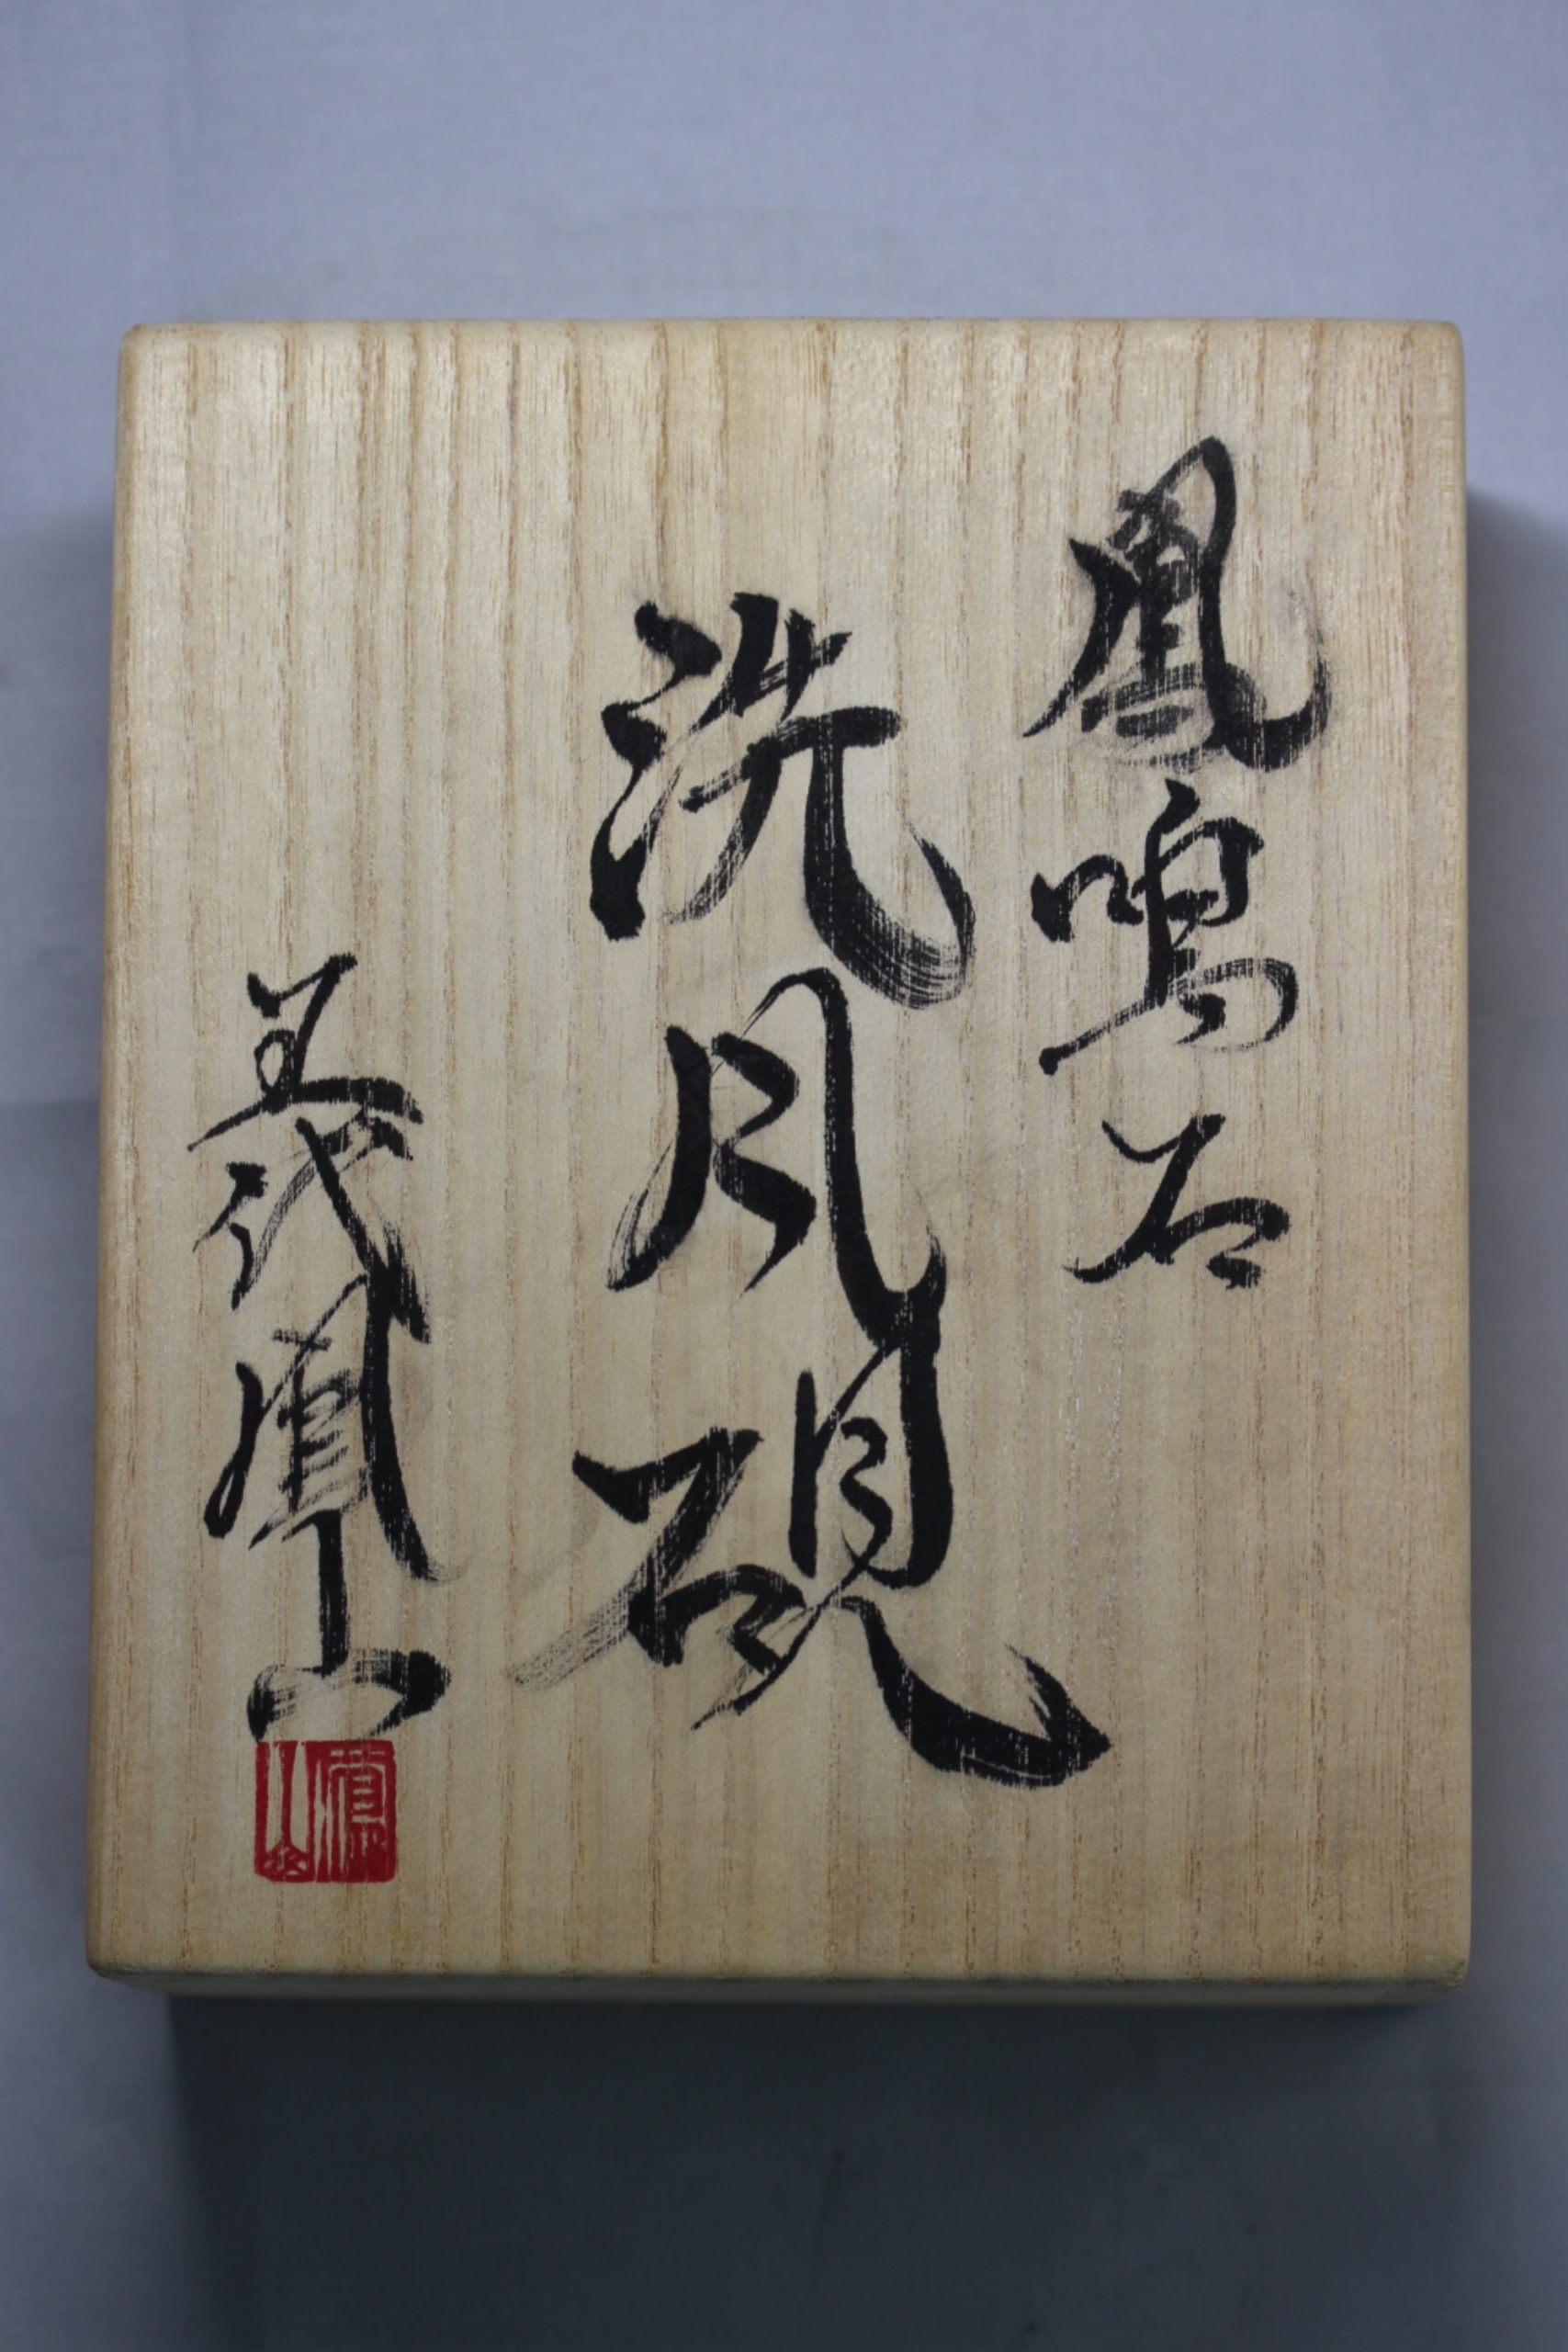 鳳鳴石
洗月硯
五代鳳山